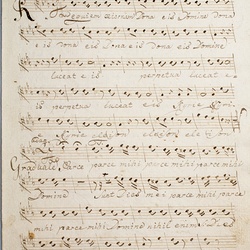 Requiem aeternam Dona eis Domine Dona
eis Dona eis Dona eis Domine
luceat eis perpetua luceat e
is perpetua luceat eis Kyrie
Kyrie eleison eleison
Graduale Parce parce mihi parce mihi parce mihi
Domine Sunt Dies mei parce mihi
parce mihi Domine nihil enim